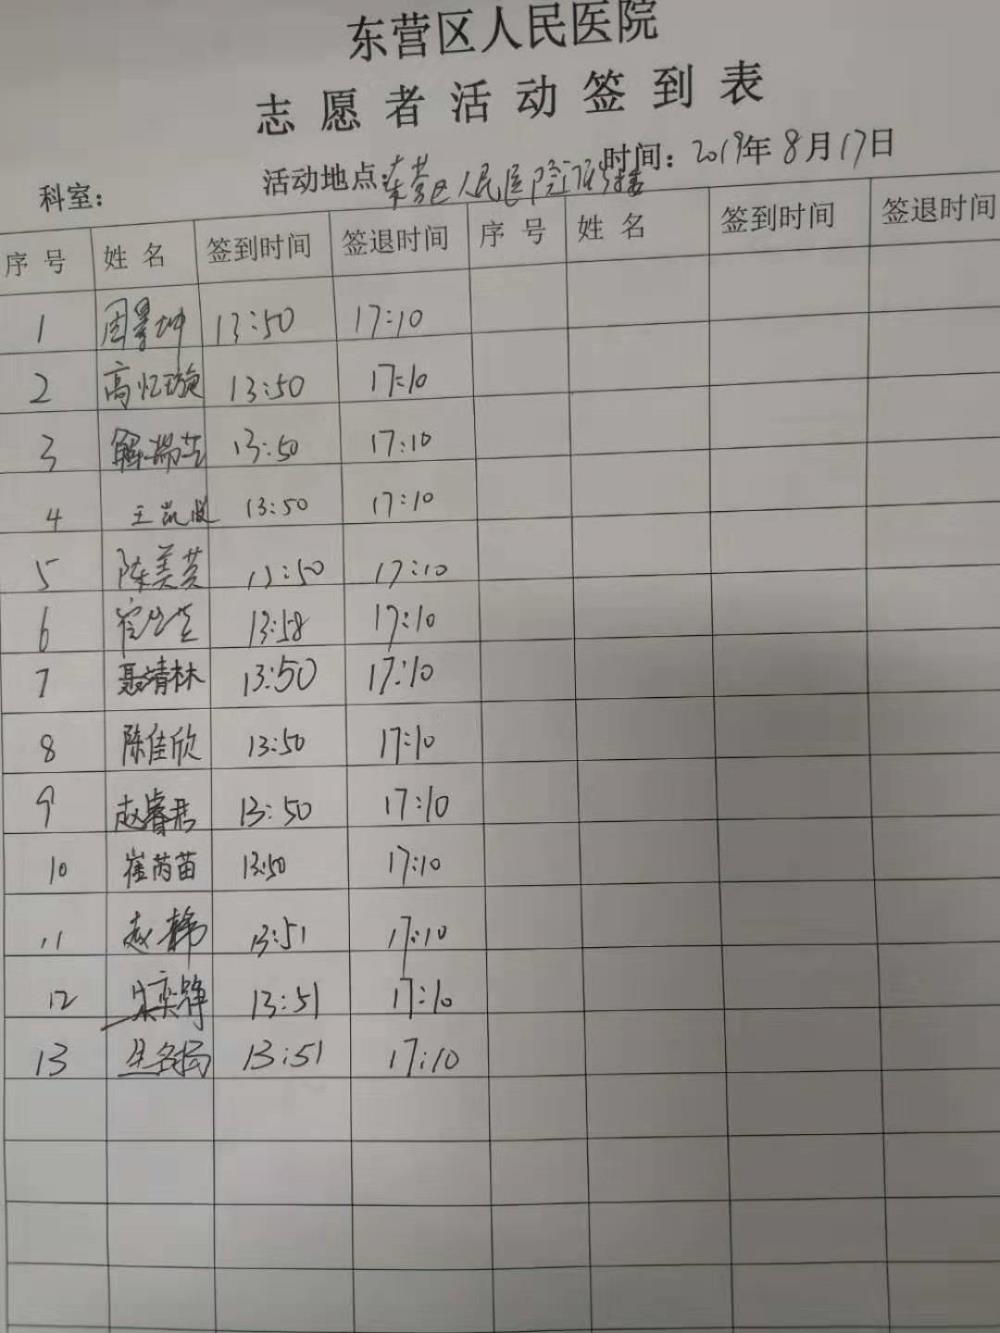 东营区人民医院
志愿者活动签到表
科室： 活动地点：东营区人民医院门诊楼 时间：2019年8月17日
序号 姓名 签到时间 签退时间 序号 姓名 签到时间 签退时间
1 周景坤 13:50 17:10
2 高忆璇 13:50 17:10
3 解瑞芸 13:50 17:10
4 王凯 13:50 17:10
5 陈美英 13:50 17:10
6 13:58 17:10
7 聂清林 13:50 17:10
8 陈佳欣 13:50 17:10
9 赵睿君 13:50 17:10
10 崔芮苗 13:50 17:10
11 赵 13:51 17:10
12 宋奕铮 13:51 17:10
13 13:51 17:10